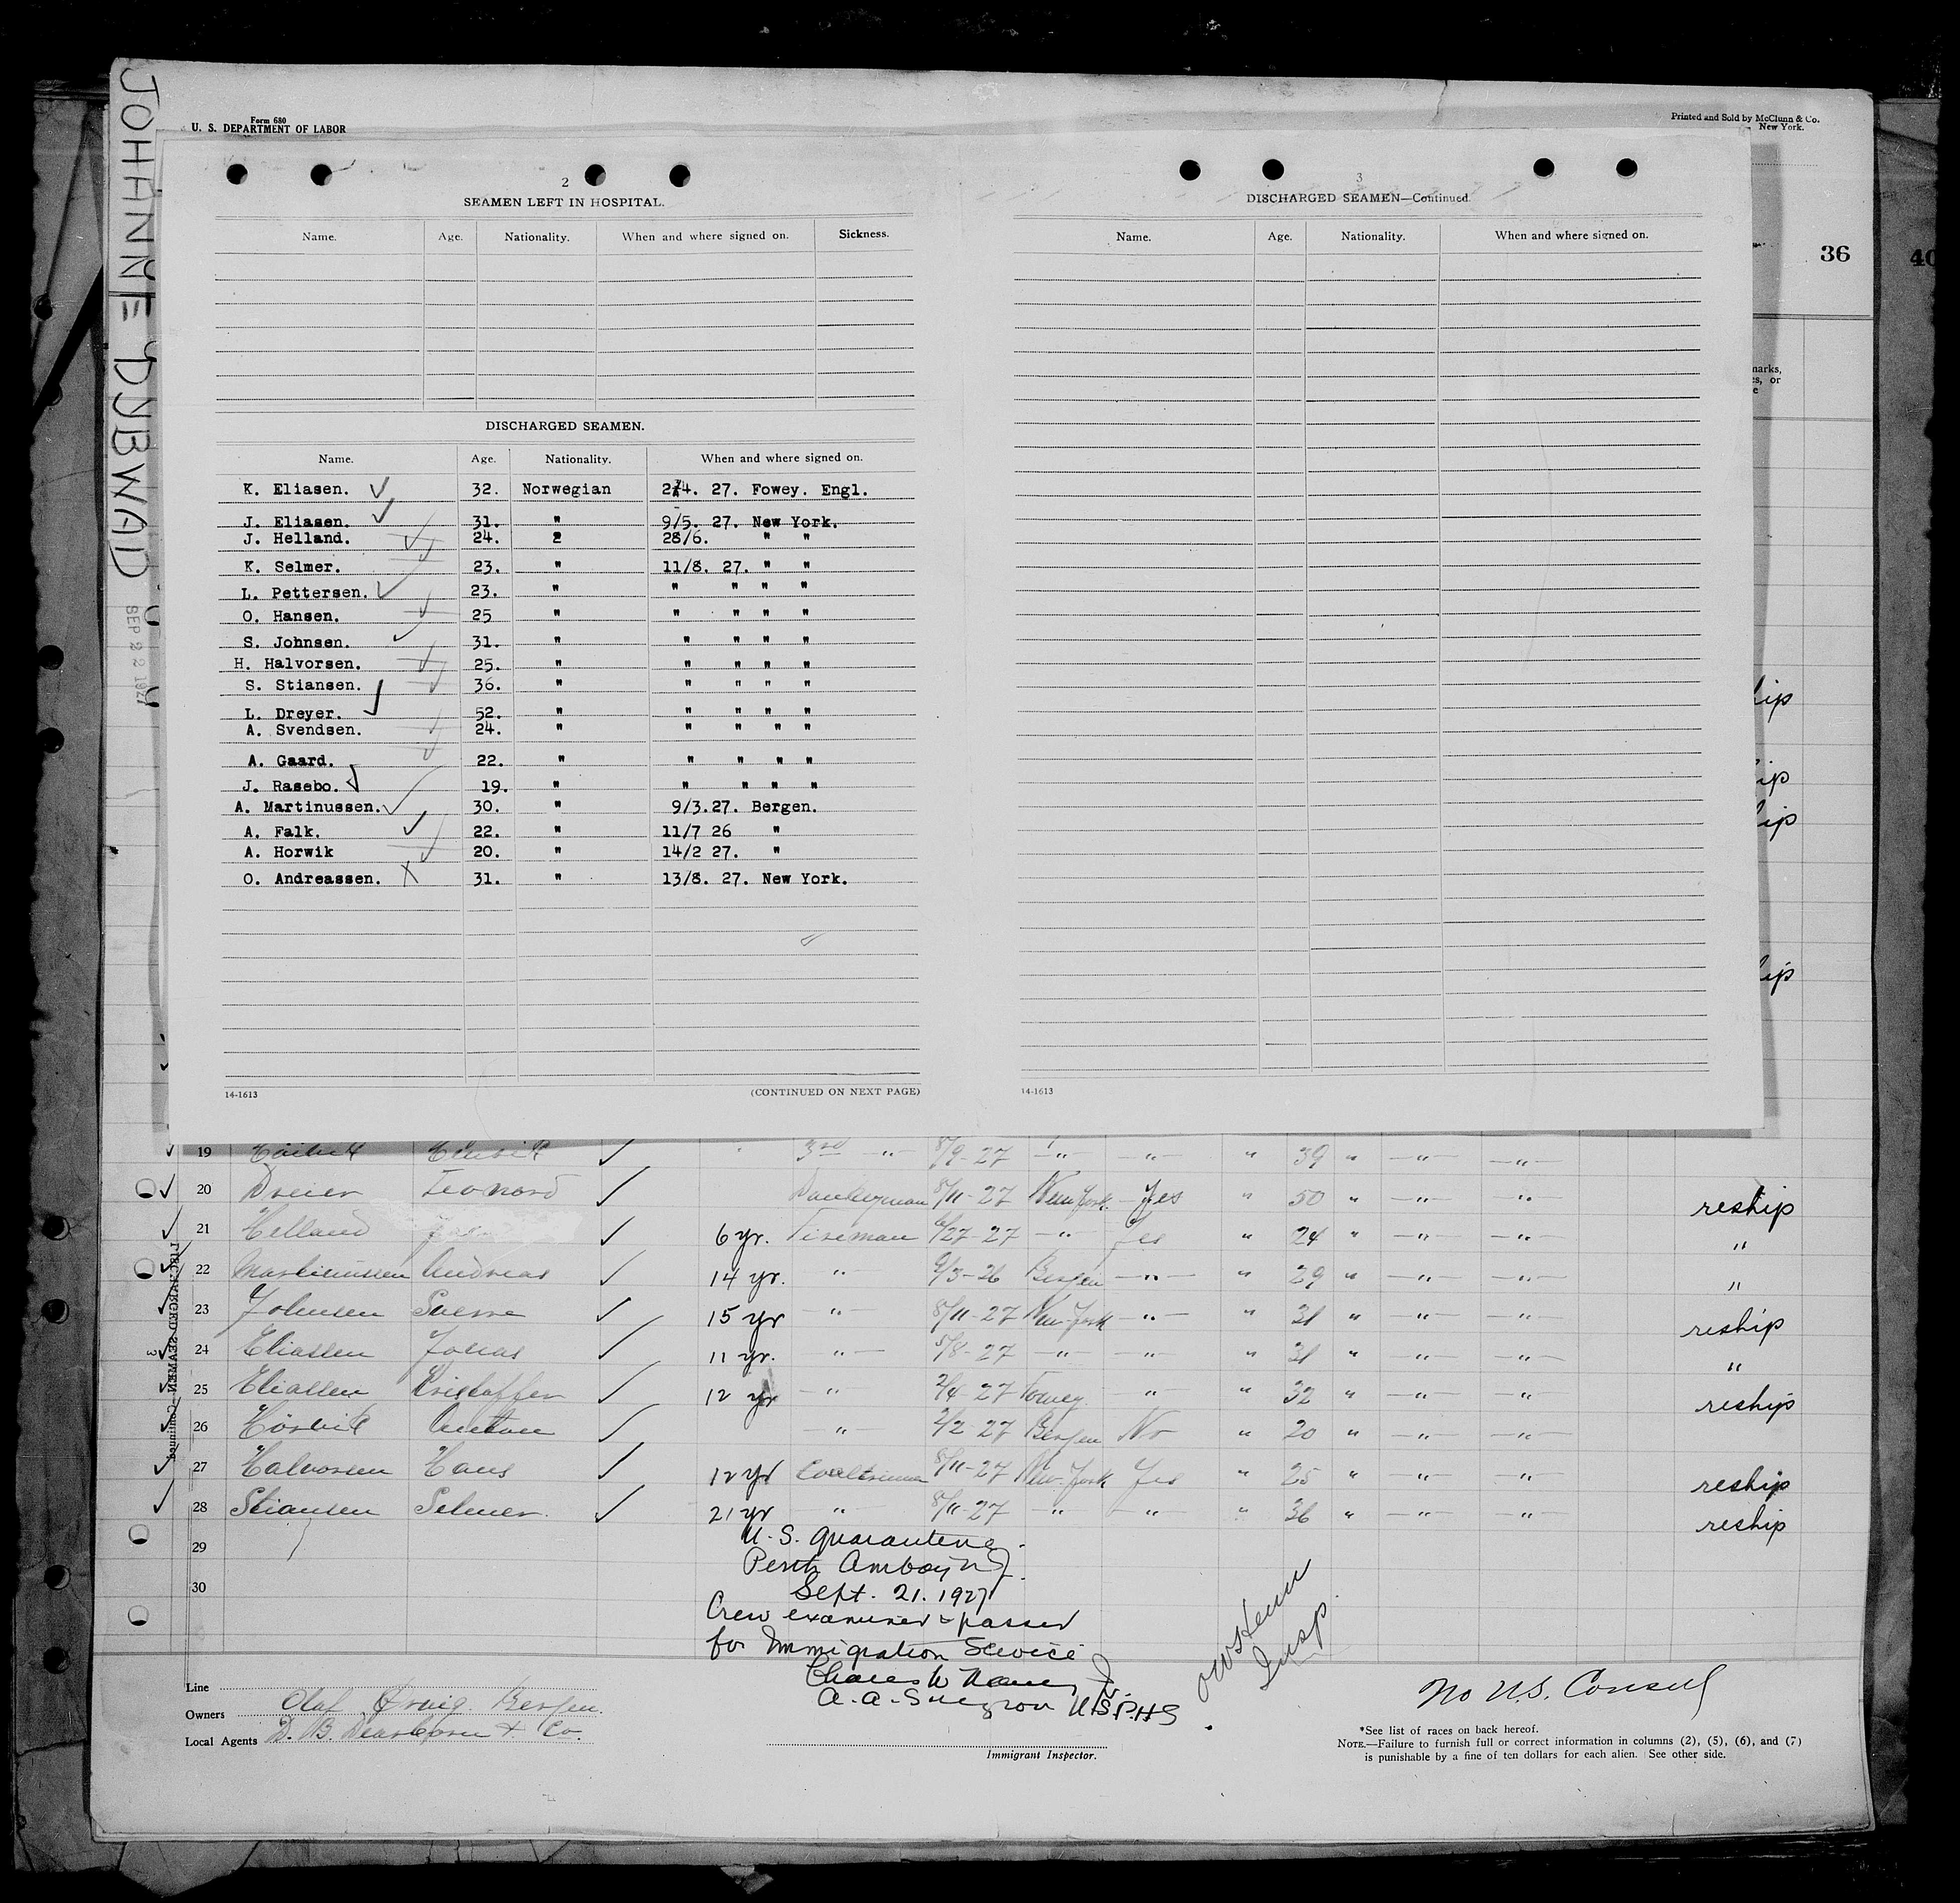 JOHANNE DYBWAD
SEP 22 1927
Form 680
U. S. DEPARTMENT OF LABOR
Printed and Sold by McClunn & Co.
New York.
36
40
marks,
es, or
e
2
SEAMEN LEFT IN HOSPITAL.
Name. Age. Nationality. When and where signed on. Sickness.
DISCHARGED SEAMEN.
Name. Age. Nationality. When and where signed on.
K. Eliasen. 32. Norwegian 4. 27. Fowey. Engl.
J. Eliasen. 31. " 9/5. 27. New York.
J. Helland. 24. 2 28/6. " "
K. Selmer. 23. " 11/8. 27. " "
L. Pettersen. 23. " " " " "
O. Hansen. 25 " " " " "
S. Johnsen. 31. " " " " "
H. Halvorsen. 25. " " " " "
S. Stiansen. 36. " " " " "
L. Dreyer. 52. " " " " "
A. Svendsen. 24. " " " " "
A. Gaard. 22. " " " " "
J. Rasebo. 19. " " " " "
A. Martinussen. 30. " 9/3.27. Bergen.
A. Falk. 22. " 11/7 26 "
A. Horwik 20. " 14/2 27. "
O. Andreassen. 31. " 13/8. 27. New York.
14-1613 (CONTINUED ON NEXT PAGE)
3
DISCHARGED SEAMEN—Continued.
Name. Age. Nationality. When and where signed on.
14-1613
ip
ip
ip
ip
DISCHARGED SEAMEN—Continued
3
19 3rd " 8/9-27 " " " 39 " " "
20 Dreier Leonard Donkeyman 8/11-27 New York Yes " 50 " " " reship
21 Helland 6 yr. Fireman 6/27-27 " Yes " 24 " " " "
22 Martinussen Andreas 14 yr. " 9/3-26 Bergen " " 29 " " " "
23 Johnsen Sverre 15 yr " 8/11-27 New York " " 31 " " " reship
24 Eliassen Jonas 11 yr. " 5/8-27 " " " 31 " " " "
25 Eliassen Kristoffer 12 yr " 2/4-27 Fowey " " 32 " " " reship
26 Anton " 2/2-27 Bergen No " 20 " " "
27 Halvorsen Hans 12 yr Coaltrimmer 8/11-27 New York Yes " 25 " " " reship
28 Stiansen Selmer. 21 yr " 8/11-27 " " " 36 " " " reship
29
30
U. S. Quarantine
Perth Amboy NJ.
Sept. 21. 1927
Crew examined & passed
for Immigration Service
Charles W
A. A. Surgeon USPHS.
Insp.
No U.S. Consul
Line
Owners Olaf Ørvig. Bergen.
Local Agents D. B. Dearborn & Co.
Immigrant Inspector.
*See list of races on back hereof.
NOTE.—Failure to furnish full or correct information in columns (2), (5), (6), and (7)
is punishable by a fine of ten dollars for each alien. See other side.